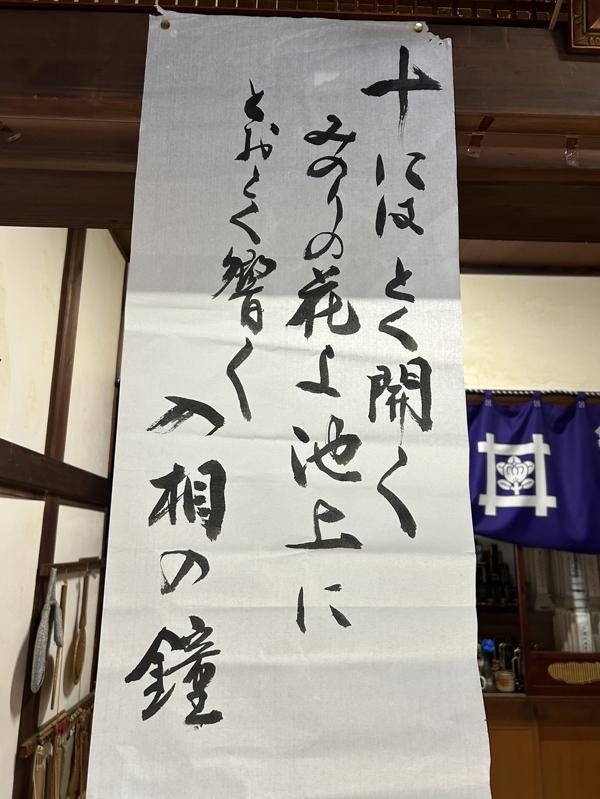 十にほとく開く
みのりの花よ池上に
とおとく響く
入相の鐘